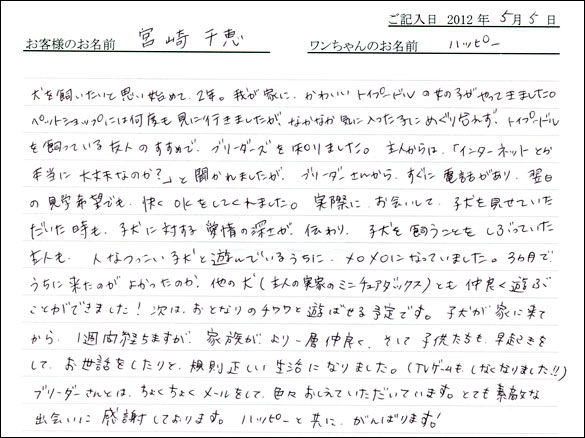 ご記入日 2012 年 5 月 5 日
お客様のお名前 宮崎 千恵 ワンちゃんのお名前 ハッピー
犬を飼いたいと思い始めて、2年。我が家に、かわいいトイプードルの女の子がやって来ました。
ペットショップには何度も見に行きましたが、なかなか気に入った子にめぐり合わず、トイプードル
を飼っている友人のすすめで、ブリーダーズを知りました。主人からは、「インターネットとか
本当に大丈夫なのか?」と聞かれましたが、ブリーダーさんから、すぐに電話があり、翌日
の見学希望でも、快くOKをしてくれました。実際に、お会いして、子犬を見せていた
だいた時も、子犬に対する愛情の深さが、伝わり、子犬を飼うことをしぶっていた
主人も、人なつっこい子犬と遊んでいるうちに、メロメロになっていました。3ヵ月で、
うちに来たのがよかったのか、他の犬(主人の実家のミニチュアダックス)とも仲良く遊ぶ
ことができました!次は、おとなりのチワワと遊ばせる予定です。子犬が家に来て
から、1週間経ちますが、家族がより一層仲良く、そして子供たちも、早起きを
して、お世話をしたりと、規則正しい生活になりました。(TVゲームもしなくなりました!!)
ブリーダーさんとは、ちょくちょくメールをして、色々おしえていただいています。とても素敵な
出会いに感謝しております。ハッピーと共に、がんばります!